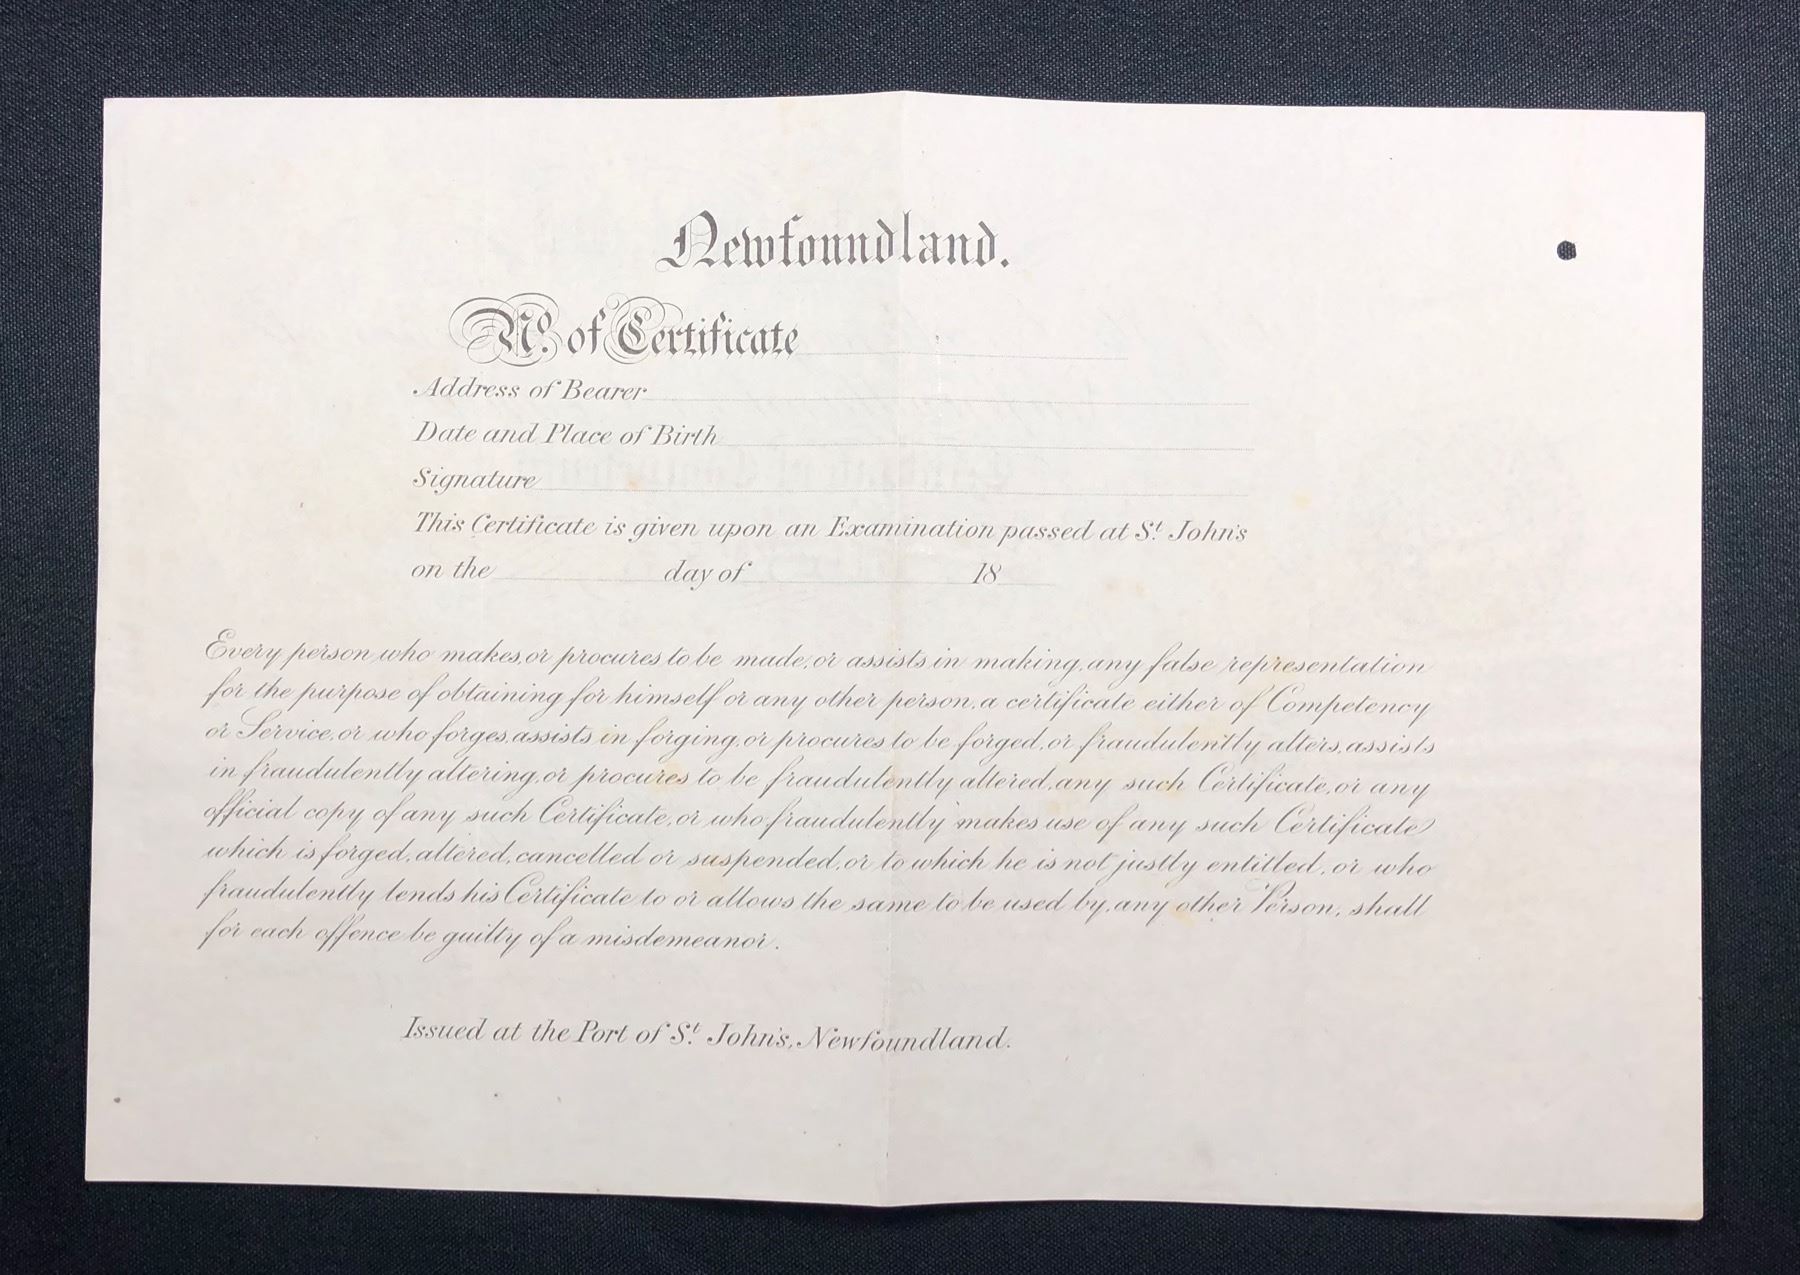 Newfoundland.
No. of Certificate
Address of Bearer
Date and Place of Birth
Signature
This Certificate is given upon an Examination passed at St. John's
on the day of 18
Every person who makes, or procures to be made, or assists in making, any false representation
for the purpose of obtaining for himself or any other person, a certificate either of Competency
or Service, or who forges, assists in forging, or procures to be forged, or fraudulently alters, assists
in fraudulently altering, or procures to be fraudulently altered, any such Certificate, or any
official copy of any such Certificate, or who fraudulently makes use of any such Certificate
which is forged, altered, cancelled or suspended, or to which he is not justly entitled, or who
fraudulently lends his Certificate to or allows the same to be used by, any other Person, shall
for each offence be guilty of a misdemeanor.
Issued at the Port of St. John's, Newfoundland.